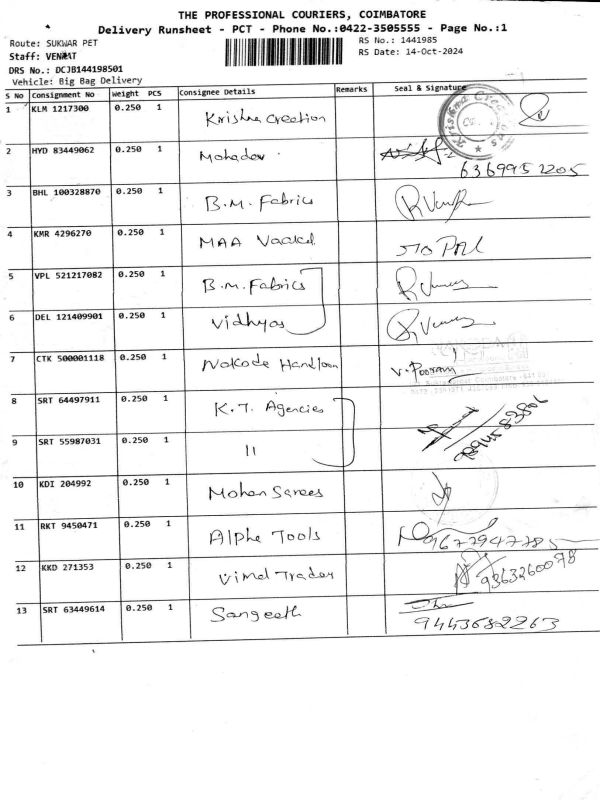 THE PROFESSIONAL COURIERS, COIMBATORE
Delivery Runsheet - PCT - Phone No.:0422-3505555 - Page No.:1
Route: SUKWAR PET
RS No.: 1441985
Staff: VENKAT
RS Date: 14-Oct-2024
DRS No.: DCJB144198501
Vehicle: Big Bag Delivery
S No Consignment No Weight PCS Consignee Details Remarks Seal & Signature
1 KLM 1217300 0.250 1 Krishna Creation
2 HYD 83449062 0.250 1 Mahadev 6369951205
3 BHL 100328870 0.250 1 B.M. Fabrics
4 KMR 4296270 0.250 1 MAA
5 VPL 521217082 0.250 1 B.M. Fabrics
6 DEL 121409901 0.250 1 Vidhyas
7 CTK 500001118 0.250 1 Nokode Handloom V. Pooram
8 SRT 64497911 0.250 1 K.T. Agencies
9 SRT 55987031 0.250 1 11
10 KDI 204992 0.250 1 Mohan Sarees
11 RKT 9450471 0.250 1 Alphe Tools 9677947785
12 KKD 271353 0.250 1 Vimal Trader 9363260078
13 SRT 63449614 0.250 1 Sangeeth
9443682263